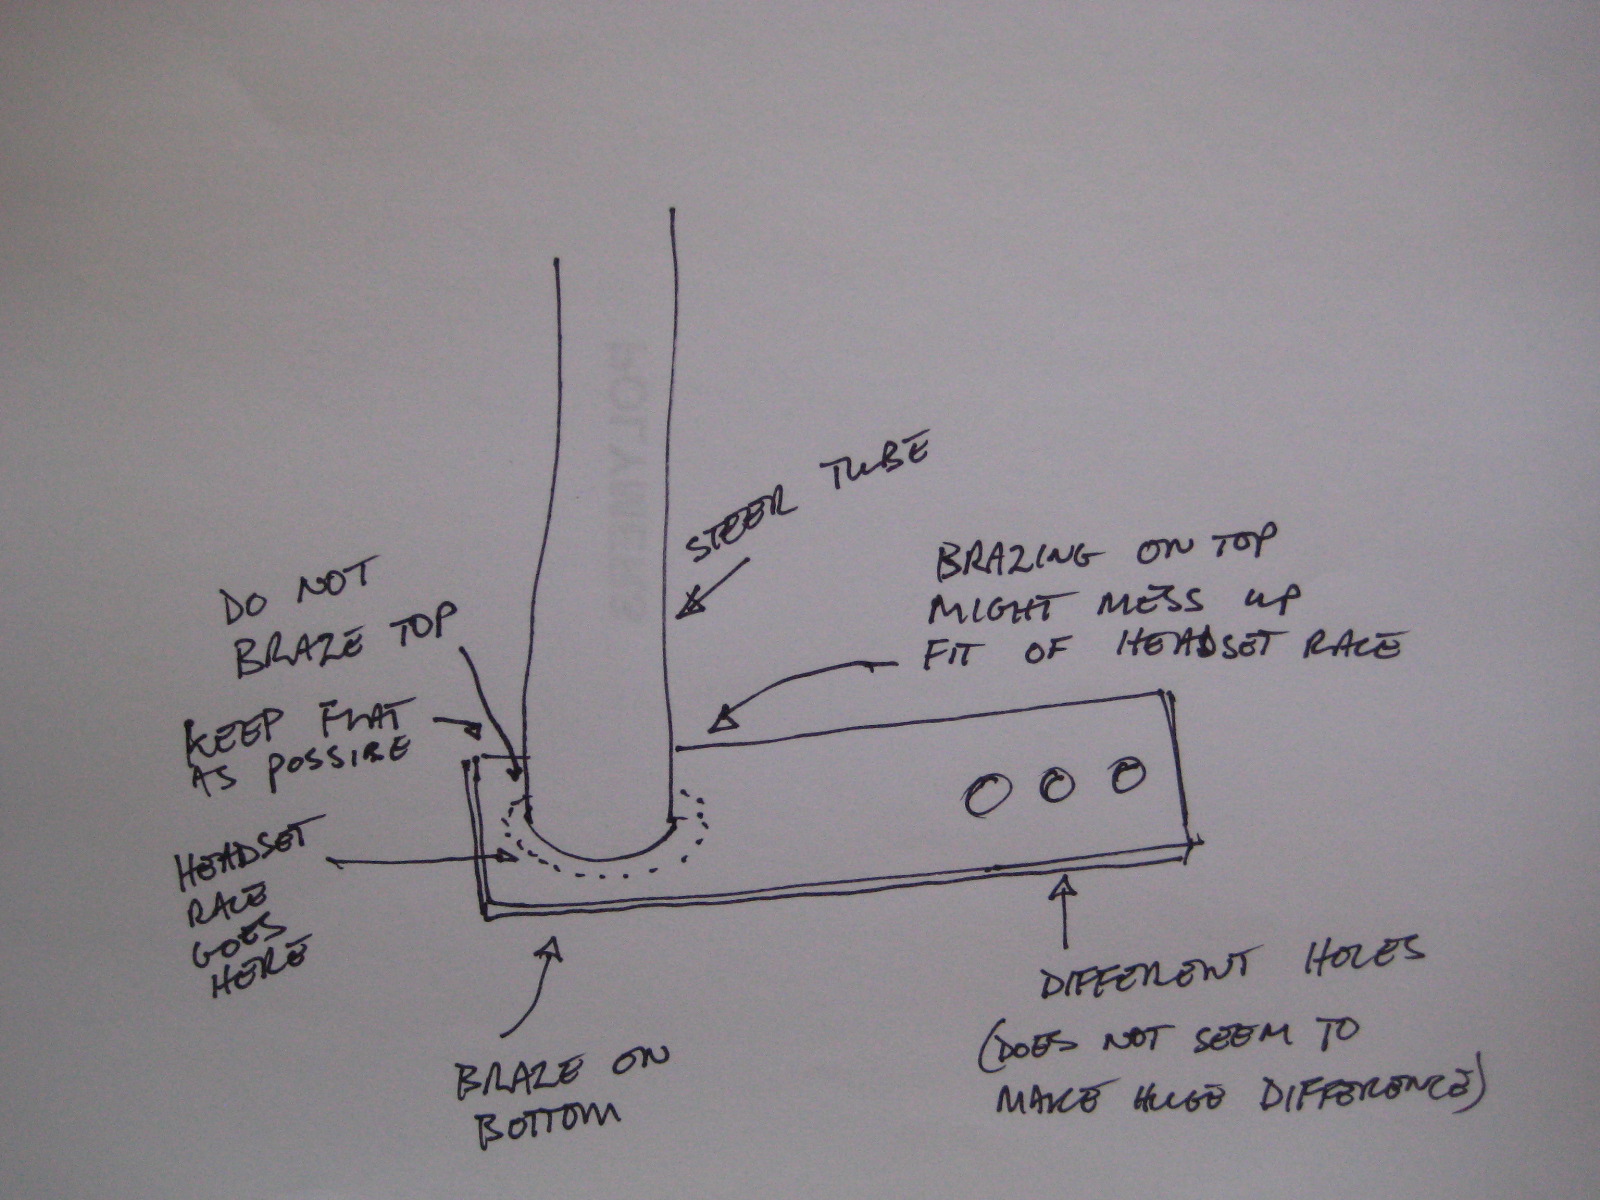 STEER TUBE
DO NOT
BRAZE TOP
BRAZING ON TOP
MIGHT MESS UP
FIT OF HEADSET RACE
KEEP FLAT
AS POSSIBLE
HEADSET
RACE
GOES
HERE
DIFFERENT HOLES
(DOES NOT SEEM TO
MAKE HUGE DIFFERENCE)
BRAZE ON
BOTTOM